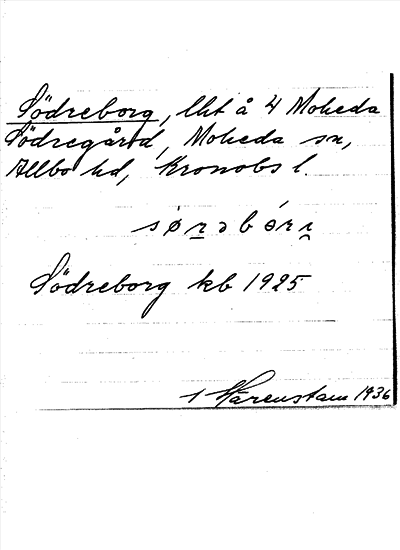 Södreborg, lht å 4 Moheda
Södregård, Moheda sn,
Allbo hd, Kronobs l.
Södreborg kb 1925
1 Härenstam 1936